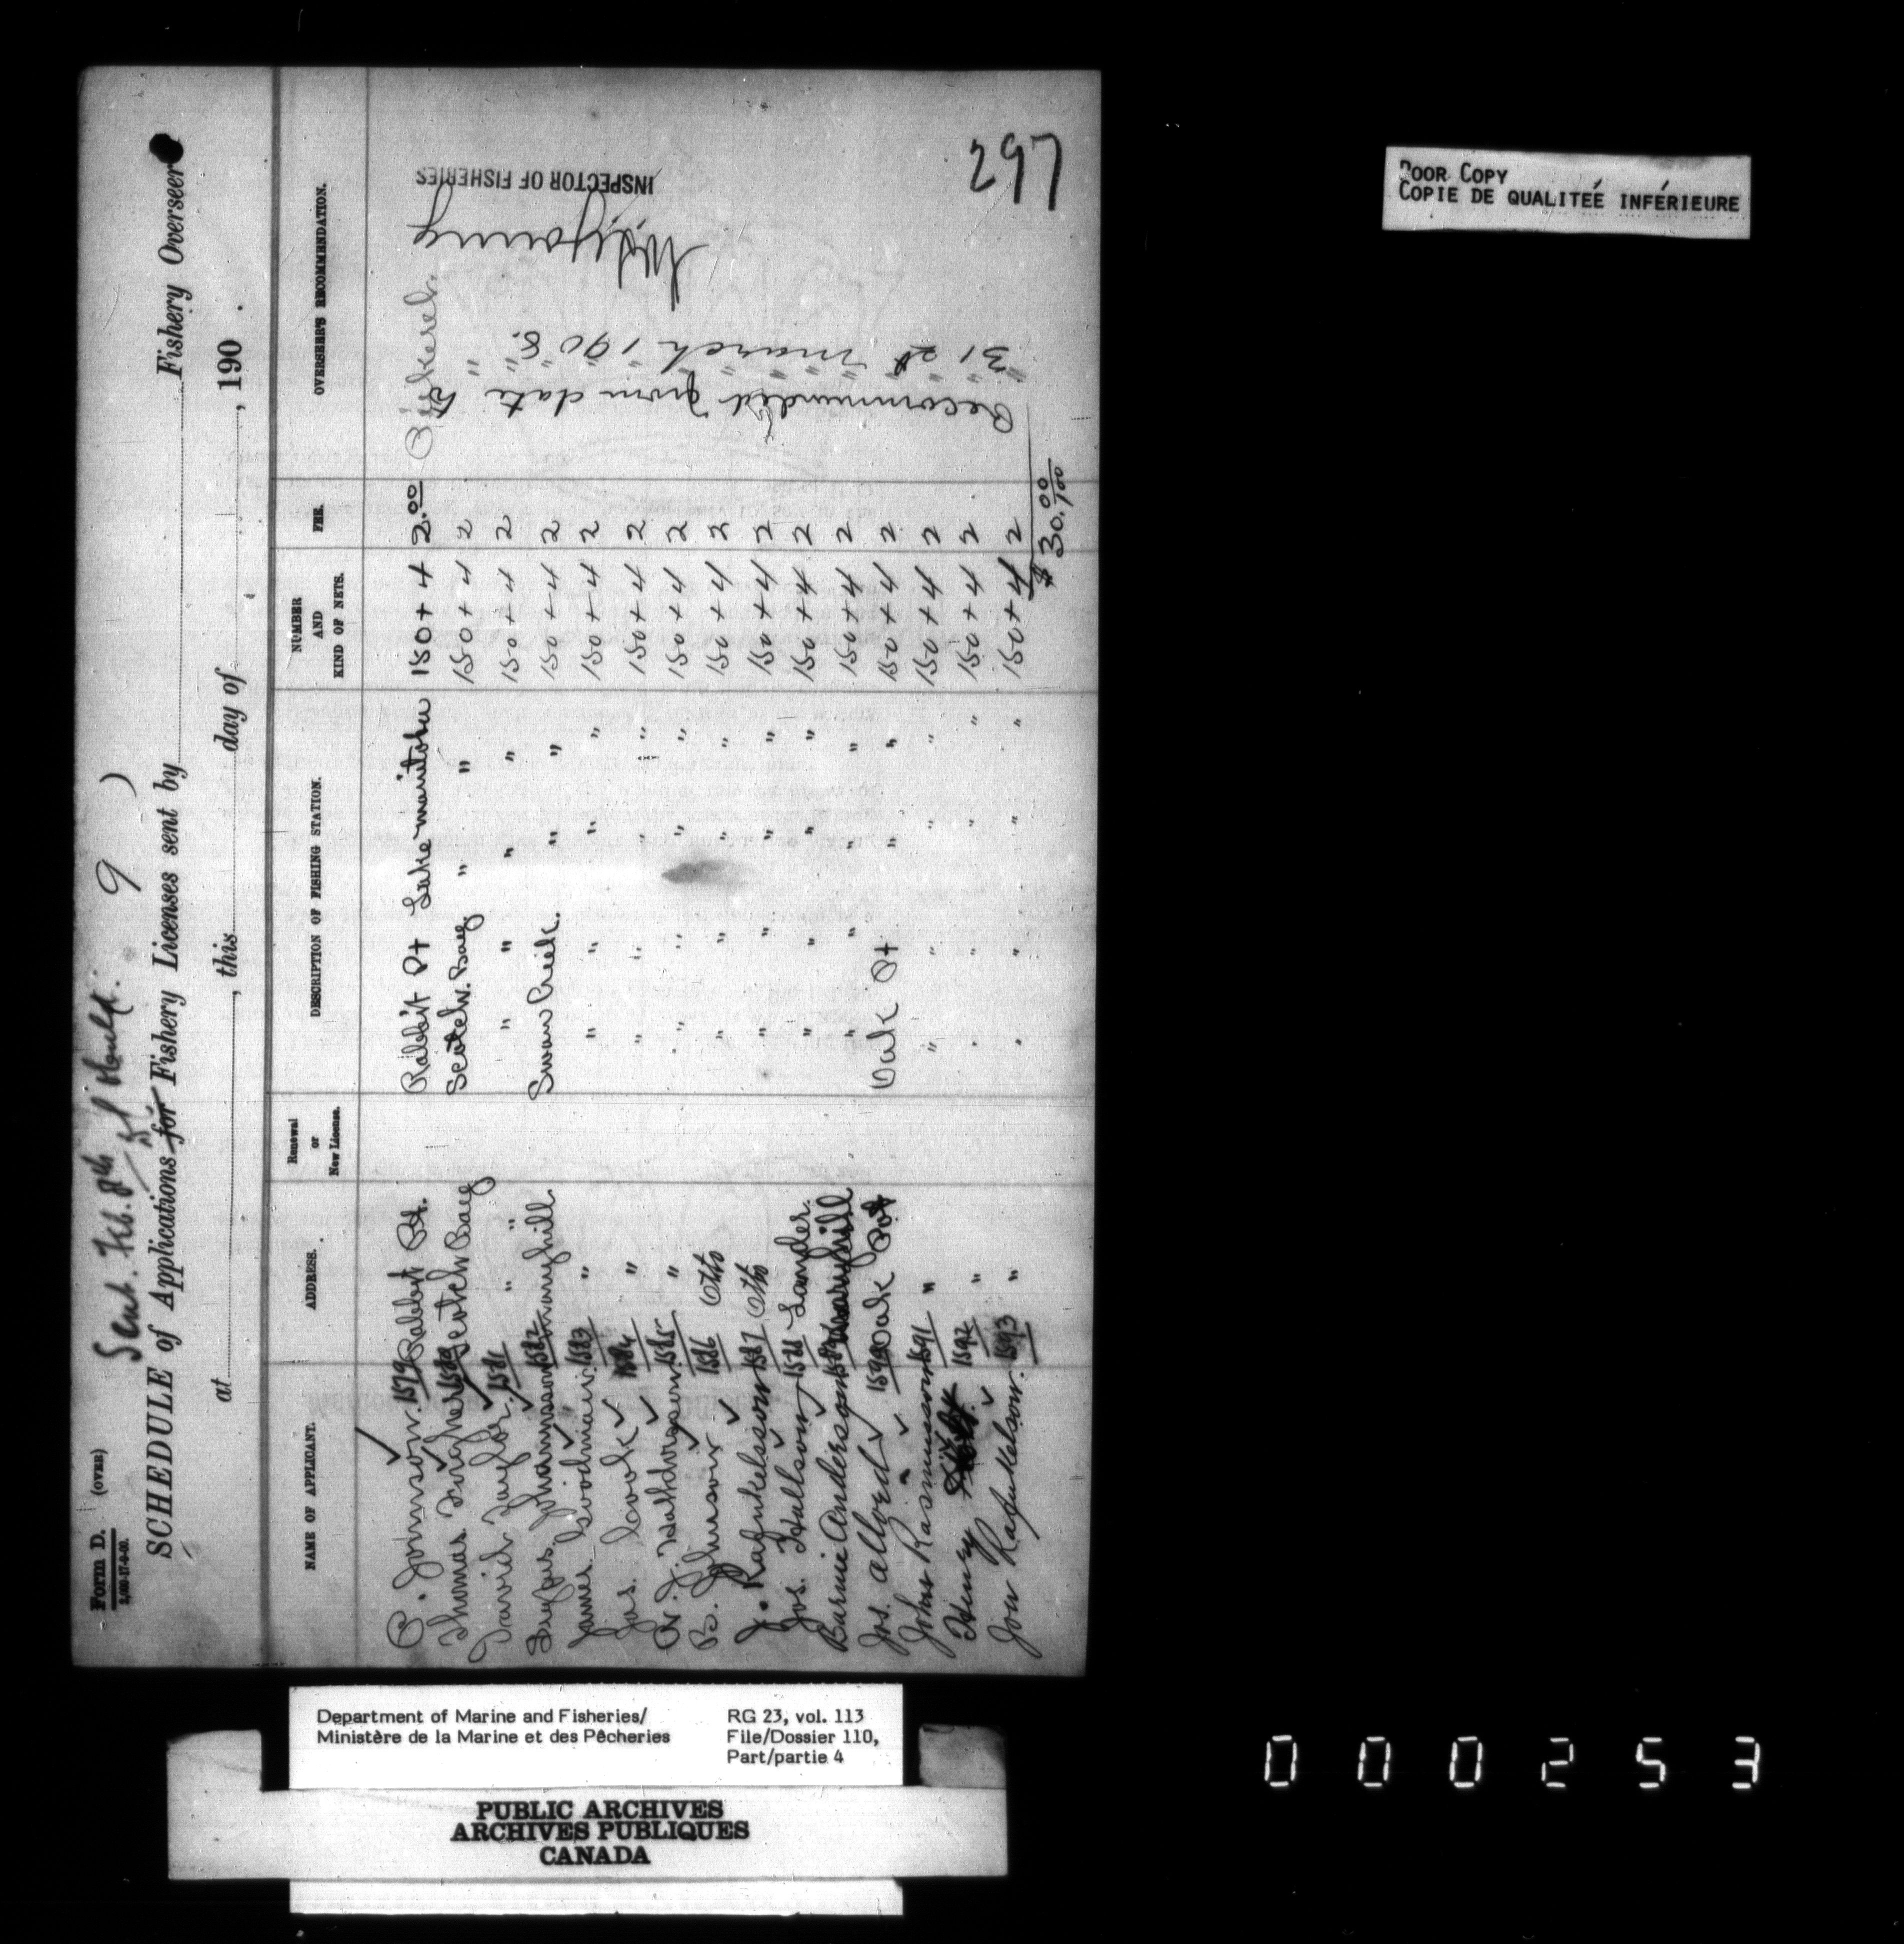 Form D. (OVER)
2,000-17-9-00.
Sent. Feb. 8th
9
SCHEDULE of Applications for Fishery Licenses sent by Fishery Overseer
at , this day of , 190 .
NAME OF APPLICANT. ADDRESS. Renewal or New License. DESCRIPTION OF FISHING STATION. NUMBER AND KIND OF NETS. FEE. OVERSEER'S RECOMMENDATION.
C. Johnson. 1579 Rabbit Pt. Rabbit Pt Lake Manitoba 150 + 4 2.00 Pickerel.
Thomas 1580 Scotch Bay Scotch Bay. " " 150 + 4 2 "
David Taylor. 1581 " " " " " " 150 + 4 2 "
Johannsson 1582 Maryhill. Swan Creek. " " 150 + 4 2 "
James Goodman. 1583 " " " " " 150 + 4 2 "
Jas. Cook 1584 " " " " " 150 + 4 2 "
1585 " " " " " 150 + 4 2 "
B. Johnson 1586 Otto " " " " 150 + 4 2 "
J. Rafnkelsson 1587 Otto " " " " 150 + 4 2 "
Jos. Hallson 1588 Lander. " " " " 150 + 4 2 "
Barnie Anderson 1589 Maryhill " " " " 150 + 4 2 "
Jos. Allord 1590 Oak Pt Oak Pt " " 150 + 4 2 "
John Rasmusson 1591 " " " " " 150 + 4 2 "
Henry 1592 " " " " " 150 + 4 2 "
Jon Rafnkelson. 1593 " " " " " 150 + 4 2 "
$ 30.00/100
Recommended from date to
31st March 1908.
INSPECTOR OF FISHERIES
297
POOR COPY
COPIE DE QUALITEÉ INFÉRIEURE
Department of Marine and Fisheries/
Ministère de la Marine et des Pêcheries
RG 23, vol. 113
File/Dossier 110,
Part/partie 4
PUBLIC ARCHIVES
ARCHIVES PUBLIQUES
CANADA
000253